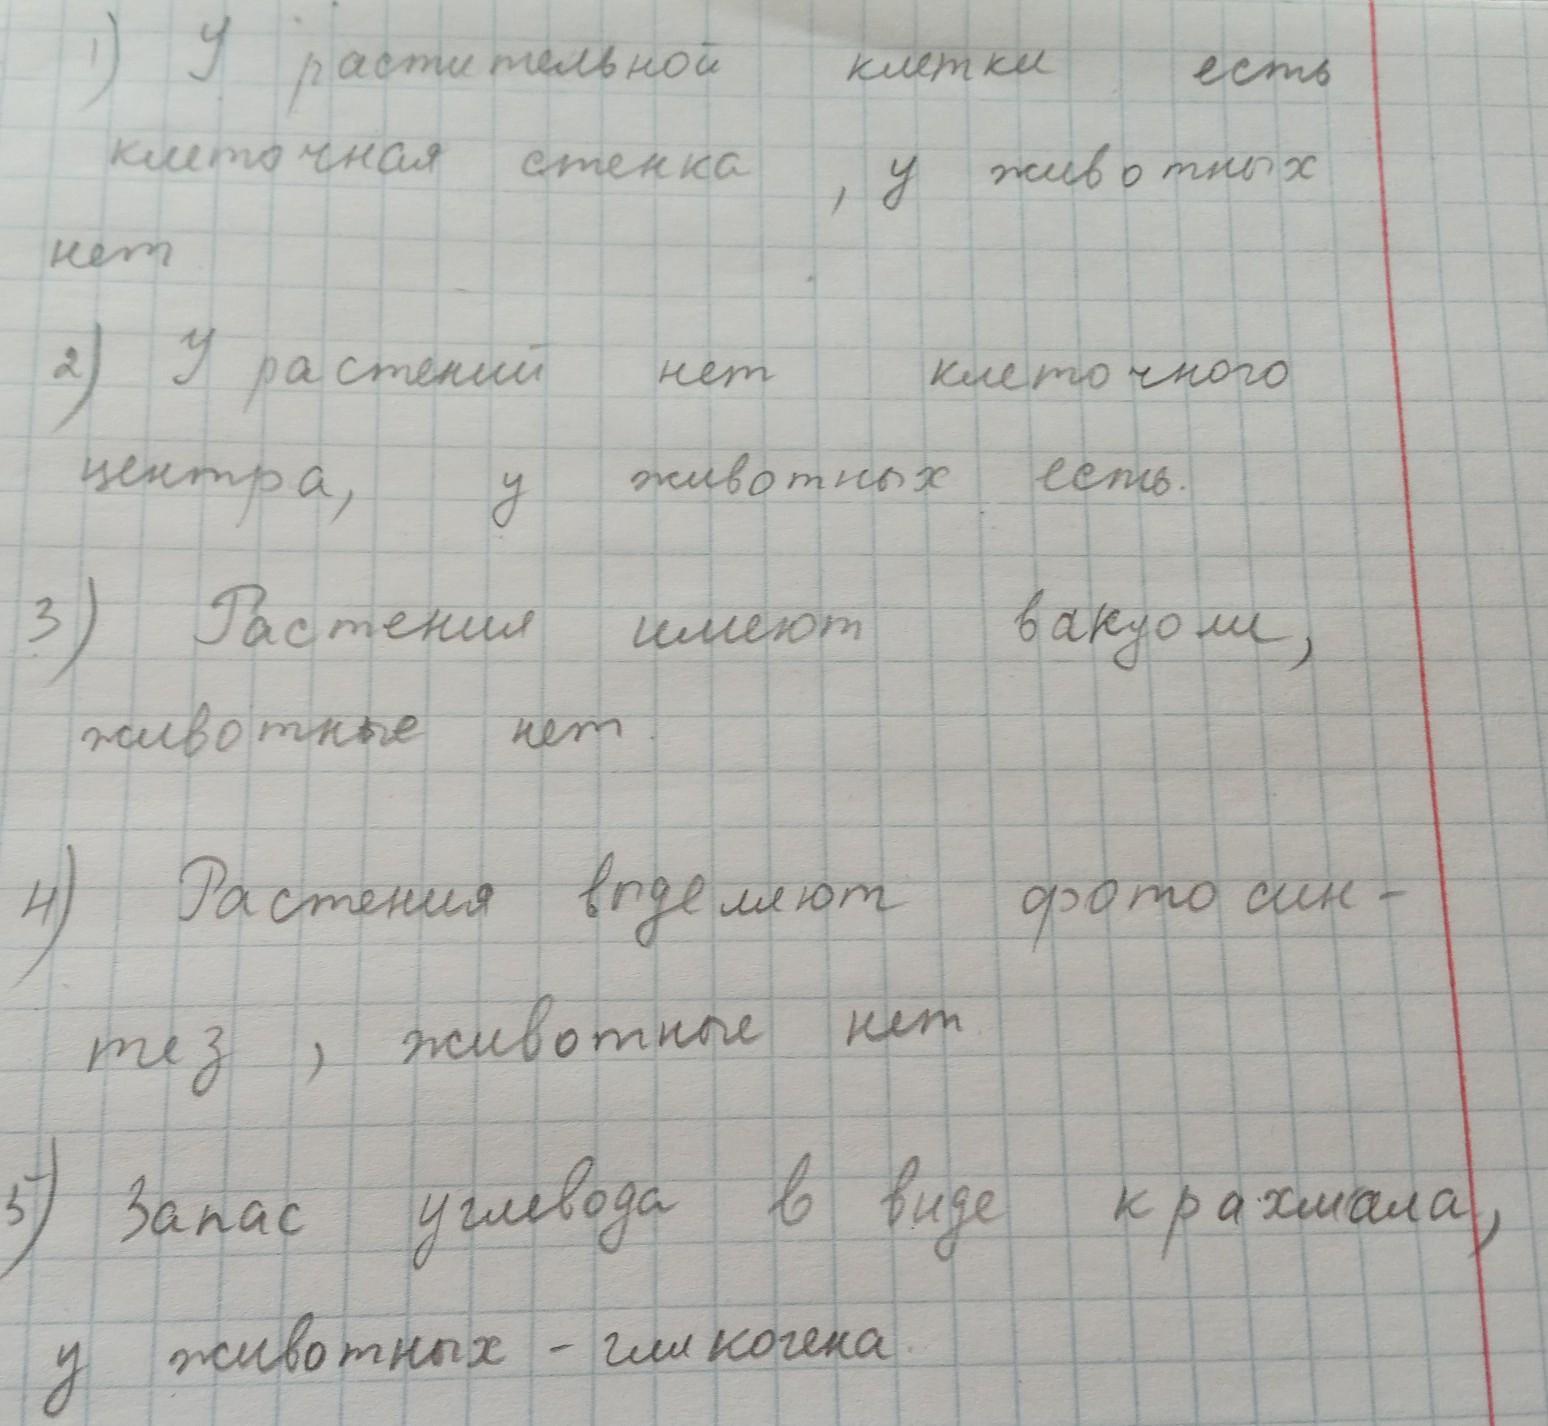 1) У растительной клетки есть
клеточная стенка, у животных
нет
2) У растений нет клеточного
центра, у животных есть.
3) Растения имеют вакуоли,
животные нет.
4) Растения выделяют фотосин-
тез, животные нет.
5) Запас углевода в виде крахмала,
у животных - гликогена.